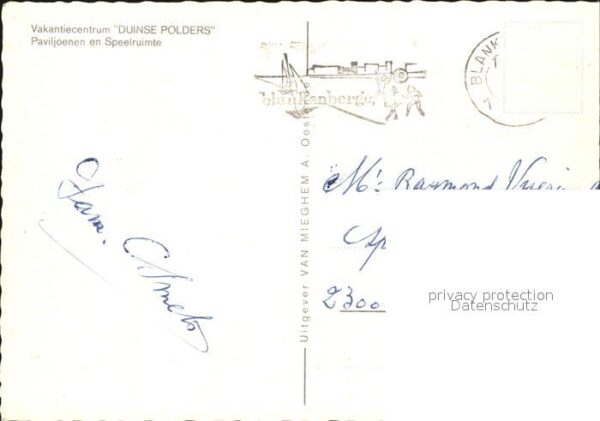 Vakantiecentrum "DUINSE POLDERS"
Paviljoenen en Speelruimte
blankenberge
BLANK
Uitgever VAN MIEGHEM A. Oostende
Fam. C. Smets
Mr. Raymond
2300
privacy protection
Datenschutz